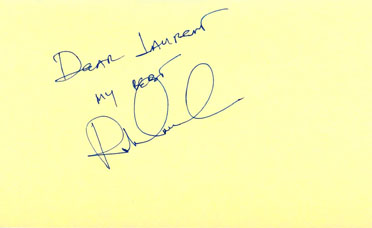 DEAR LAURENT
MY BEST